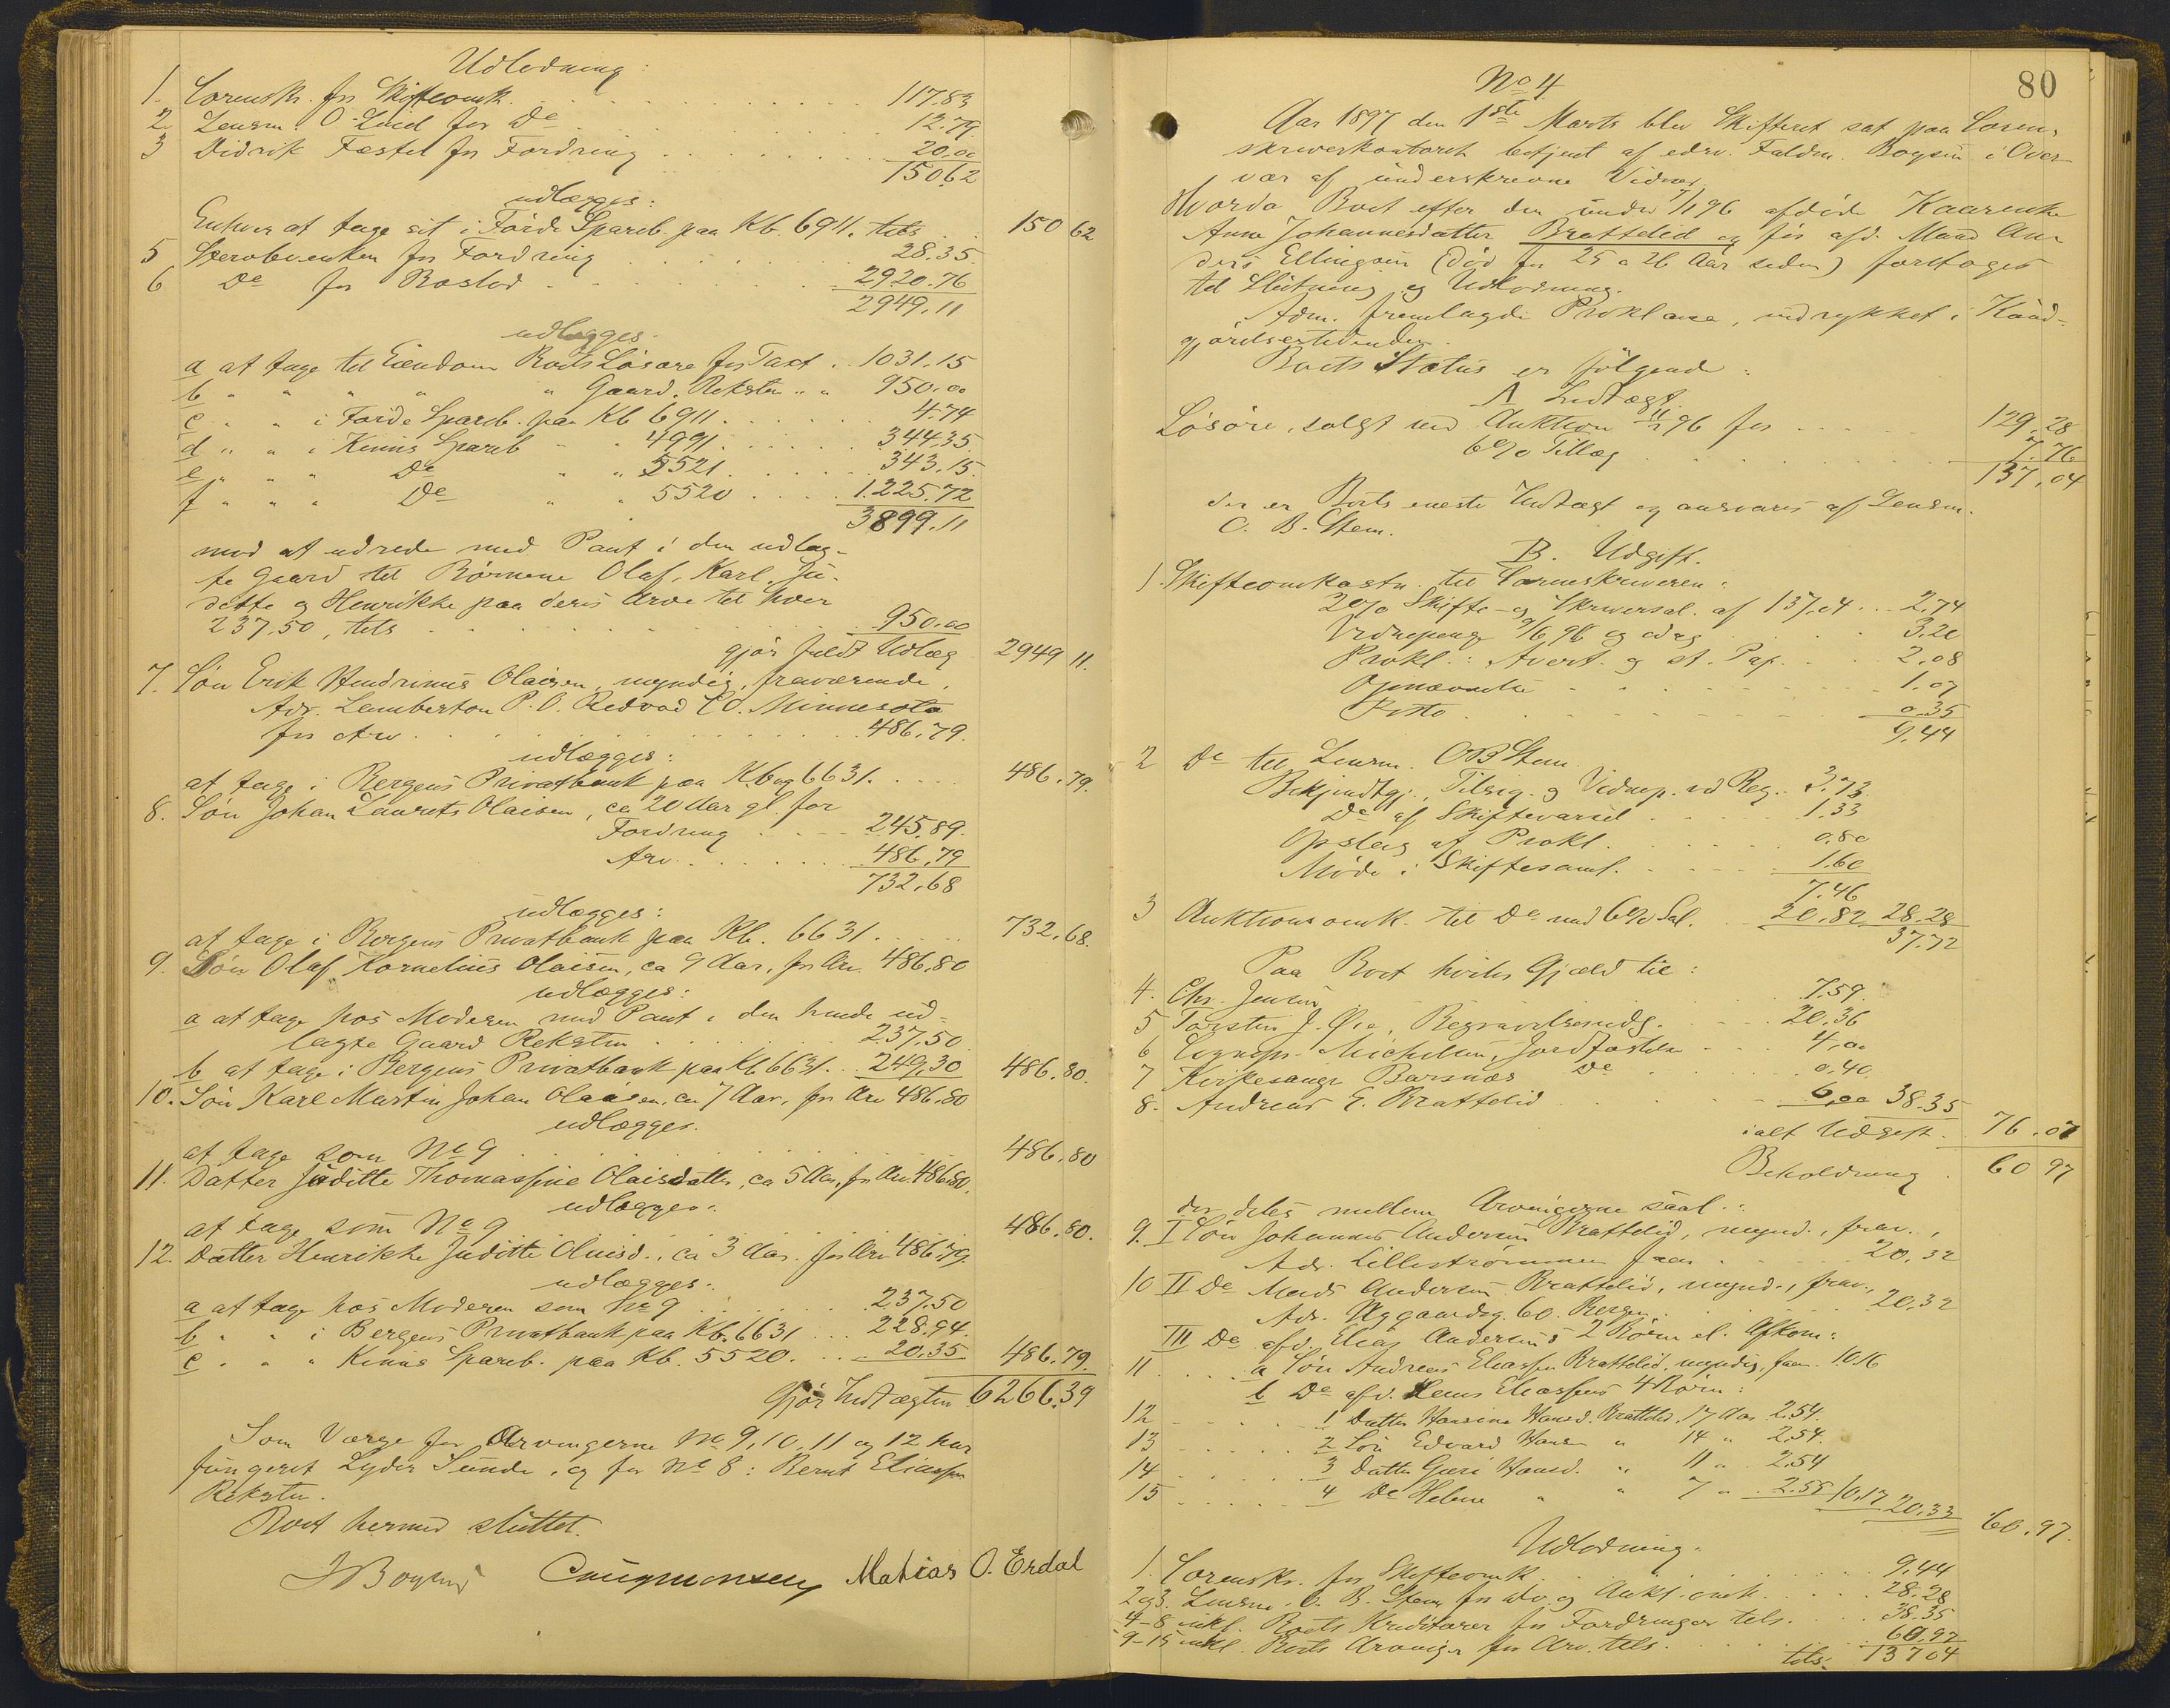 Udlodning:
1. Sorenskr. for Skifteomk. 117.83
2. Lensm. O. Lind for Do 12.79
3 Didrik Fæstel for Fordring 20.00
150.62
udlægges:
Enhver at tage sit i Förde Spareb. paa Kb. 6911. tils 150 62
5 Sterboenken for Fordring 28.35.
6 Do for Boslod 2920.76
2949.11
udlægges.
a at tage til Eiendom Boets Lösöre for Taxt 1031.15
b " " " " Gaard Reksten " " 950.00
c " " i Förde Spareb. paa Kb 6911 4.74
d " " i Kinns Spareb " " 4991 344.35
e " " " Do " " 5521 343.15.
f " " " Do " " 5520 1.225.72
3899.11
mod at udrede med Pant i den udlag-
te Gaard til Börnene Olaf, Karl, Ju-
ditte og Henrikke paa deres Arv til hver
237.50, tils 950.00
gjör fuldt Udlæg 2949 11.
7. Sön Erik Hendrinus Olaisen, myndig, fraværende,
Adr. Lamberton P.O. Redvod CO. Minnesota
for Arv 486.79.
udlægges:
at tage i Bergens Privatbank paa Kbog 6631. 486.79.
8. Sön Johan Laurits Olaisen, ca 20 Aar gl. for
Fordring 245.89.
Arv 486.79
732.68
udlægges:
at tage i Bergens Privatbank paa Kb. 6631. 732.68.
9. Sön Olaf Kornelius Olaisen, ca 9 Aar, for Arv. 486.80
udlægges:
a at tage hos Moderen med Pant i den hende ud-
lagte Gaard Reksten 237.50
b at tage i Bergens Privatbank paa Kb 6631. 249.30 486.80.
10. Sön Karl Martin Johan Olaisen, ca 7 Aar, for Arv 486.80
udlægges.
at tage som No 9 486.80
11. Datter Juditte Thomassine Olaisdatter, ca 5 Aar, for Arv. 486.80.
udlægges:
at tage som No 9 486.80.
12. Datter Henrikke Juditte Olaisd., ca 3 Aar. for Arv 486.79.
udlægges:
a at tage hos Moderen som No 9 237.50
b " " i Bergens Privatbank paa Kb. 6631 228.94.
c " " " Kinns Spareb. paa Kb. 5520. 20.35 486.79.
Gjör Indtægten 6266.39
Som Værge for Arvingerne No 9, 10, 11 og 12 har
fungeret Lyder Sunde, og for No 8: Bernt Eliassen
Reksten.
Boet hermed sluttet.
JBoysen Mathias O. Erdal
80
No 4.
Aar 1897 den 1ste Marts blev Skifteret sat paa Soren-
skriverkontoret betjent af edsv. Fuldm. Boysen i Over-
vær af underskrevne Vidner.
Hvorda Boet efter den under 7/1 96 afdöde Kaarenke
Anne Johannesdatter Brattelid og för afd. Mand An-
ders Ellingsen (död for 25 a 26 Aar siden) foretages
til Slutning og Udlodning.
Adm. fremlagde Proklama, indrykket i Kund-
gjörelsestidenden.
Boets Status er fölgende:
A Indtægt.
Lösöre, solgt ved Auktion 11/7 96 for 129.28
6% Tillæg 7.76
137.04
der er Boets eneste Indtægt og ansvares af Lensm.
O. B. Stem.
B. Udgift.
1. Skifteomkostn. til Sorenskriveren:
2% Skifte- og Skriversal. af 137.04 2.74
Vidnepenge 9/6 96 og idag 3.20
Prokl.: Avert. og st. Pap. 2.08
Opnævnelse 1.07
Porto 0.35
9.44
2 Do til Lensm. OB Stem
Bekjendtgj., Tilsig. og Vidnep. ved Reg. 3.73
Do af Skiftevarsel 1.33
Opslag af Prokl. 0.80
Möde i Skiftesaml. 1.60
7.46
3 Auktionsomk. til Do med 6% Sal. 20.82 28.28
37.72
Paa Boet hviler Gjæld til:
4. Chr. Jensen 7.59.
5 Torsten J. Öie, Begravelsesudg. 20.36
6 Sognepr. Michelsen, Jordfæstelse 4.00
7 Kirkesanger Barsnæs Do 0.40
8. Andreas E. Brattelid 6.00 38.35
ialt Udgift. 76.07
Beholdning 60 97
der deles mellem Arvingerne saal.:
9. I Sön Johannes Andersen Brattelid, mynd., frav.,
Adr. Lilleströmmen faar 20.32
10 II Do Mads Andersen Brattelid, mynd., frav.,
Adr. Nygaardsg. 60. Bergen 20.32
III Do afd. Elias Andersens 2 Börn el. Afkom:
11 a Sön Andreas Eliassen Brattelid, myndig, faar 10.16
b Do afd. Hans Eliassens 4 Börn:
12 1 Datter Hansine Hansd. Brattelid, 17 Aar 2.54.
13 2 Sön Edvard Hansen " 14 " 2.54.
14 3 Datter Guri Hansd. " 11 " 2.54
15 4 Do Helene " " 7 " 2.55 10.17 20.33 60.97.
Udlodning.
1. Sorenskr. for Skifteomk. 9.44
2 og 3. Lensm. O. B. Stem for do. og Aukt. omk. 28.28
4-8 inkl. Boets Kreditorer for Fordringer tils. 38.35
9-15 inkl. Boets Arvinger for Arv. tils. 60.97
tils. 137.04